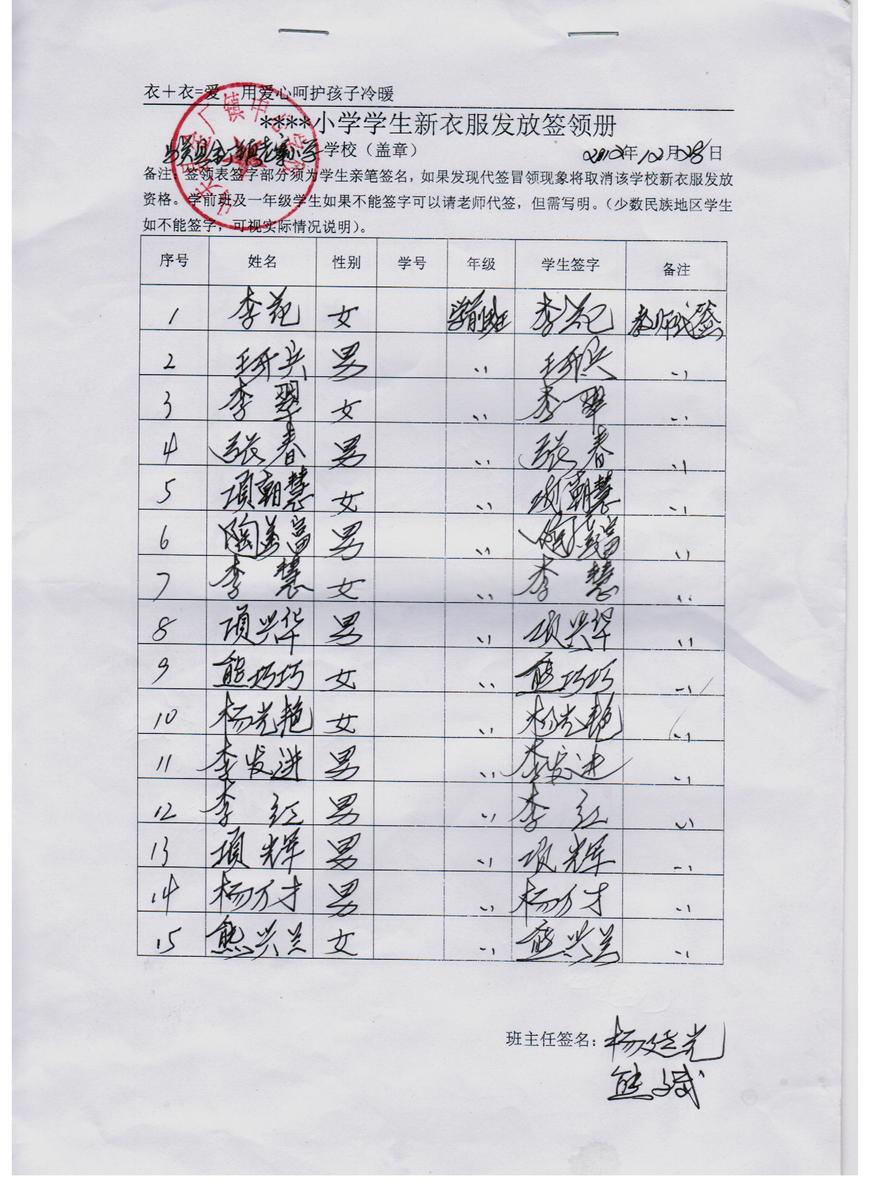 衣＋衣=爱 用爱心呵护孩子冷暖
****小学学生新衣服发放签领册
学校（盖章） 2012年12月28日
备注：签领表签字部分须为学生亲笔签名，如果发现代签冒领现象将取消该学校新衣服发放
资格。学前班及一年级学生如果不能签字可以请老师代签，但需写明。（少数民族地区学生
如不能签字，可视实际情况说明）。
序号 姓名 性别 学号 年级 学生签字 备注
1 李苑 女 学前班 李苑 教师代签
2 男 〃 〃
3 李翠 女 〃 李翠 〃
4 张春 男 〃 张春 〃
5 项朝慧 女 〃 项朝慧 〃
6 陶美富 男 〃 〃
7 李慧 女 〃 李慧 〃
8 项兴华 男 〃 项兴华 〃
9 熊巧巧 女 〃 熊巧巧 〃
10 杨光艳 女 〃 杨光艳 〃
11 李发进 男 〃 李发进 〃
12 李红 男 〃 李红 〃
13 项辉 男 〃 项辉 〃
14 杨万才 男 〃 杨万才 〃
15 熊兴兰 女 〃 熊兴兰 〃
班主任签名：杨廷光
熊斌